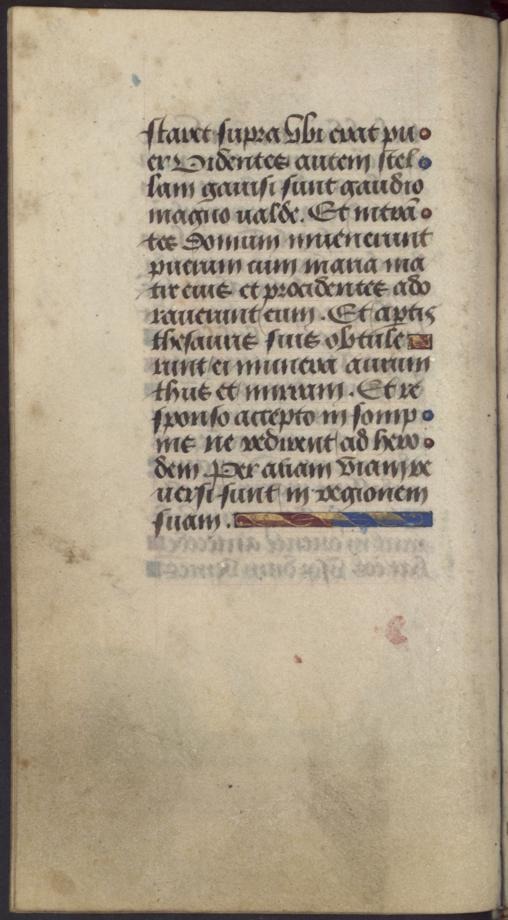 staret supra vbi erat pu
er Videntes autem stel
lam gauisi sunt gaudio
magno ualde. Et intrā
tes domum inuenerunt
puerum cum maria ma
tre eius et procidentes ado
rauerunt eum. Et aptis
thesauris suis obtule
runt ei munera aurum
thus et mirram. Et re
sponso accepto in somp
nis ne redirent ad hero
dem Per aliam viam re
uersi sunt in regionem
suam.